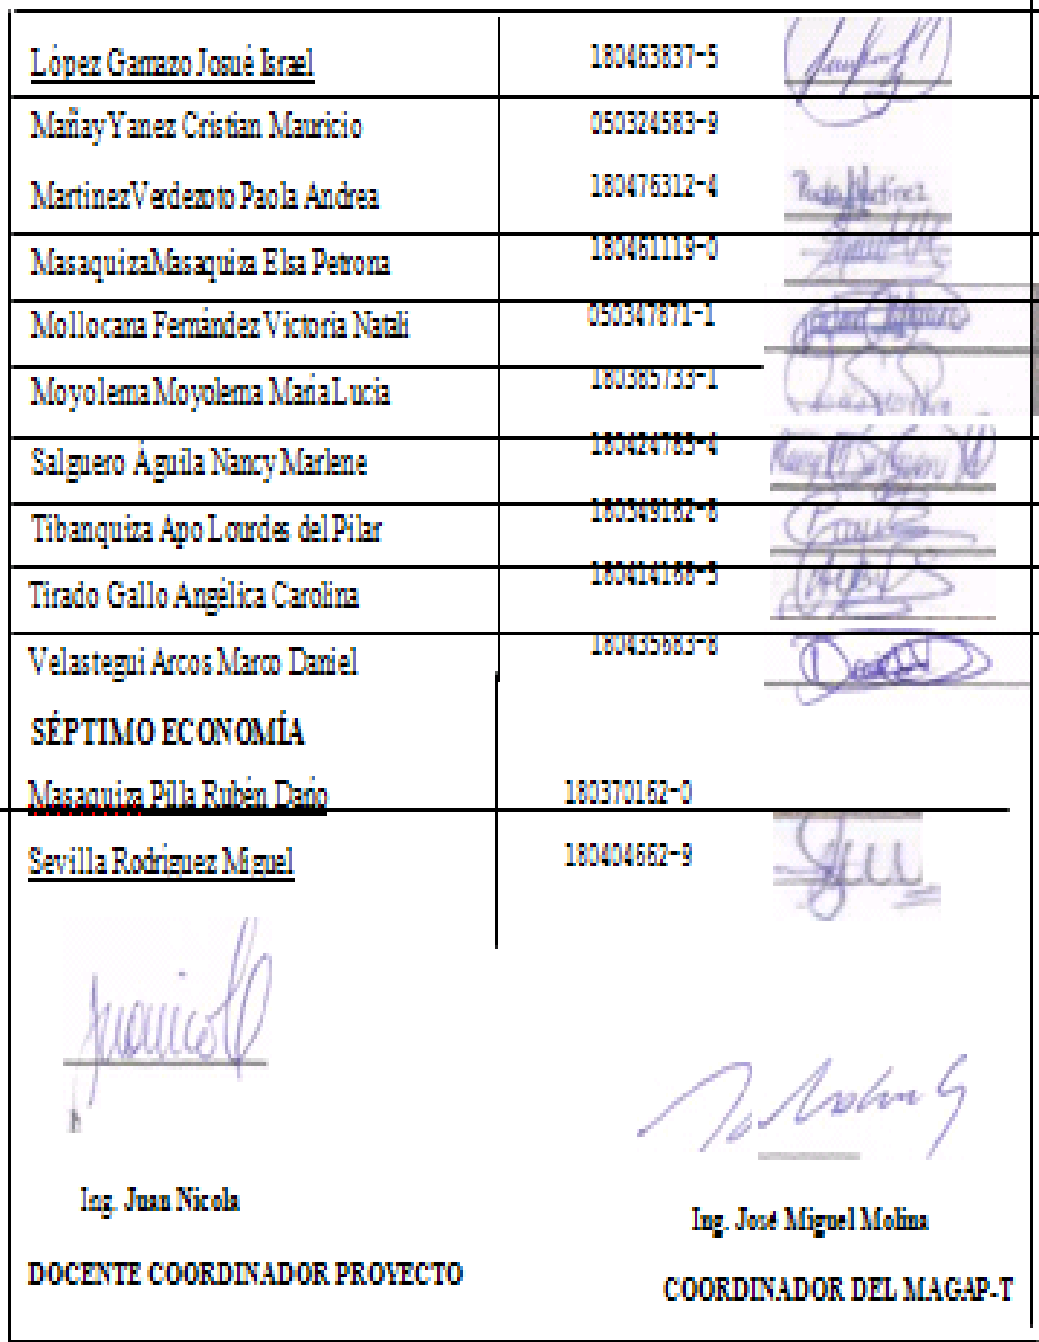 López Garnazo Josué Israel 180463837-5
Mañay Yanez Cristian Mauricio 050324583-9
MartinezVerdezoto Paola Andrea 180476312-4
MasaquizaMasaquiza Elsa Petrona 180461119-0
Mollocana Fernández Victoria Natali 050347871-1
MoyolemaMoyolema MariaLucia 180385733-1
Salguero Águila Nancy Marlene 180424785-4
Tibanquiza Apo Lourdes del Pilar 180349162-8
Tirado Gallo Angélica Carolina 180414168-5
Velastegui Arcos Marco Daniel 180435683-8
SÉPTIMO ECONOMÍA
Masaquiza Pilla Rubén Darío 180370162-0
Sevilla Rodríguez Miguel 180404662-9
Ing. Juan Nicola
Ing. José Miguel Molina
DOCENTE COORDINADOR PROYECTO
COORDINADOR DEL MAGAP-T